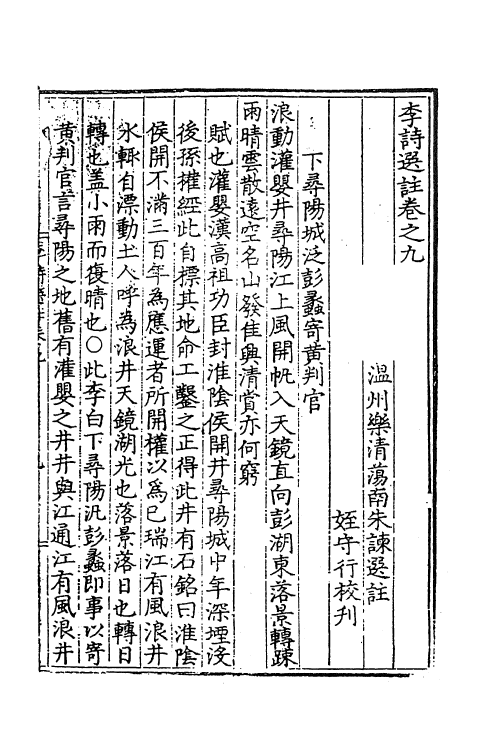 李詩選註卷之九
溫州樂清蕩南朱諫選註
姪守行校刊
下尋陽城泛彭蠡寄黄判官
浪動灌嬰井尋陽江上風開帆入天鏡直向彭湖東落景轉踈
雨晴雲散遠空名山發佳興清賞亦何窮
賦也灌嬰漢高祖功臣封淮陰侯開井尋陽城中年深堙沒
後孫權經此自標其地命工鑿之正得此井有石銘曰淮陰
侯開不滿三百年為應運者所開權以爲已瑞江有風浪井
水輙自漂動土人呼為浪井天鏡湖光也落景落日也轉日
轉也盖小雨而復晴也○此李白下尋陽汎彭蠡即事以寄
黄判官言尋陽之地舊有灌嬰之井井與江通江有風浪井